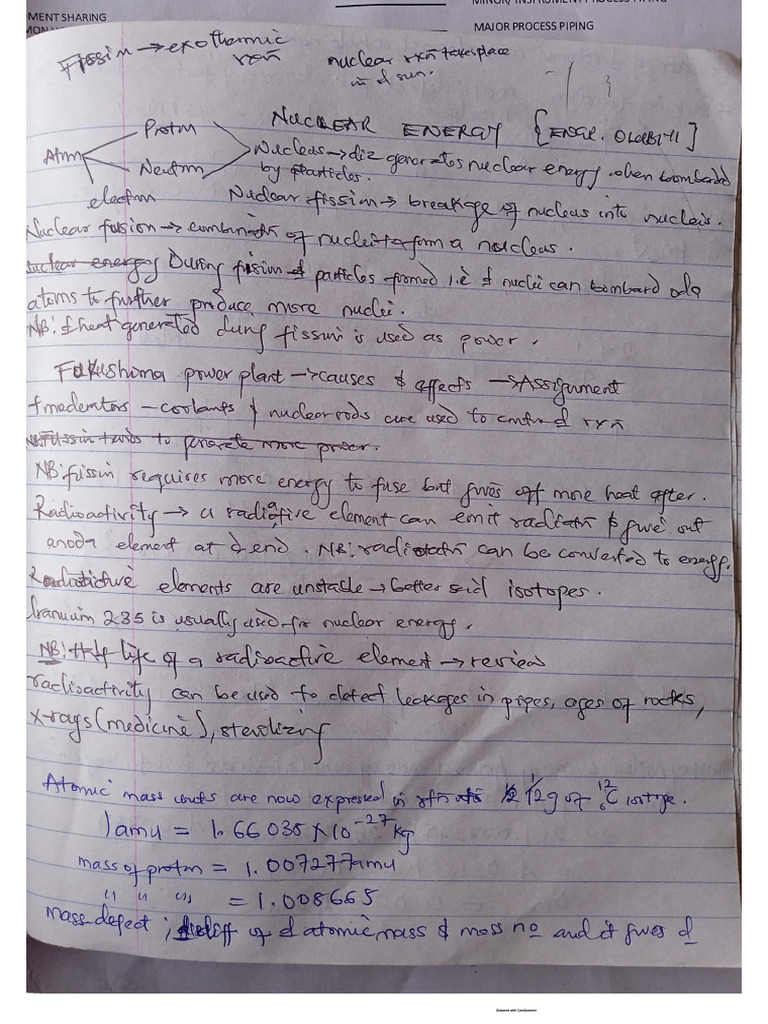 MINOR/ INSTRUMENT PROCESS PIPING
MENT SHARING
MAJOR PROCESS PIPING
Fission → exothermic
rxn
nuclear rxn takes place
in d sun.
NUCLEAR ENERGY [ENGR.
Atom
Proton
Neutron
electron
Nucleus → diz generates nuclear energy when bombarded
by particles.
Nuclear fission → breakage of nucleus into nucleis.
Nuclear fusion → combinatn of nuclei to form a nucleus.
nuclear energy During fission d particles fromed i.e d nuclei can bombard oda
atoms to further produce more nuclei.
NB: d heat generated durng fission is used as power.
Fukushoma power plant → causes & affects → Assignment
moderators - coolants & nuclear rods are used to control d rxn
to generate more power.
NB: fusion requires more energy to fuse but gives off more heat after.
Radioactivity → a radioactive element can emit radiatn & give out
anoda element at d end. NB: radiatn can be converted to energy.
Radioactive elements are unstable → better said isotopes.
Uranium 235 is usually used for nuclear energy.
NB: Half life of a radioactive element → review
radioactivity can be used to detect leakages in pipes, ages of rocks,
x-rays (medicine), sterilizing
Atomic mass units are now expressed in 1/12g of 12 6 C isotope.
1 amu = 1.66035 x 10-27 kg
mass of proton = 1.007277amu
" " " = 1.008665
mass defect; diff of d atomic mass & mass no and it gives d
Scanned with CamScanner